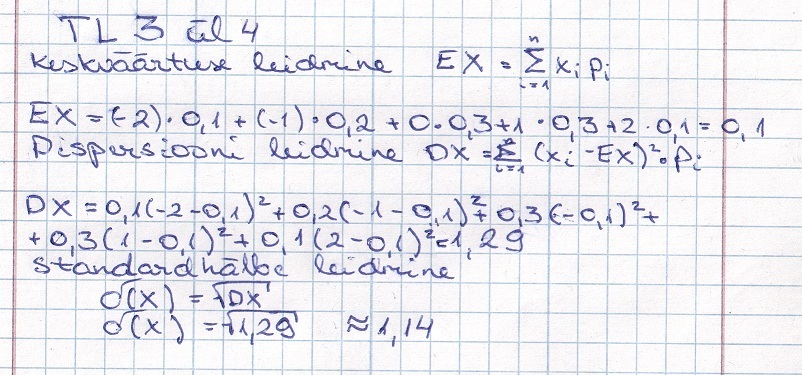 TL 3 ül 4
Keskväärtuse leidmine EX = n∑i=1 xi pi
EX = (-2)·0,1 + (-1)·0,2 + 0·0,3+1·0,3+2·0,1 = 0,1
Dispersiooni leidmine DX = n∑i=1 (xi - EX)²·pi
DX = 0,1(-2-0,1)² + 0,2(-1-0,1)² + 0,3(-0,1)² +
+0,3(1-0,1)² + 0,1(2-0,1)² = 1,29
Standardhälbe leidmine
σ(X) = √DX
σ(X) = √1,29 ≈ 1,14